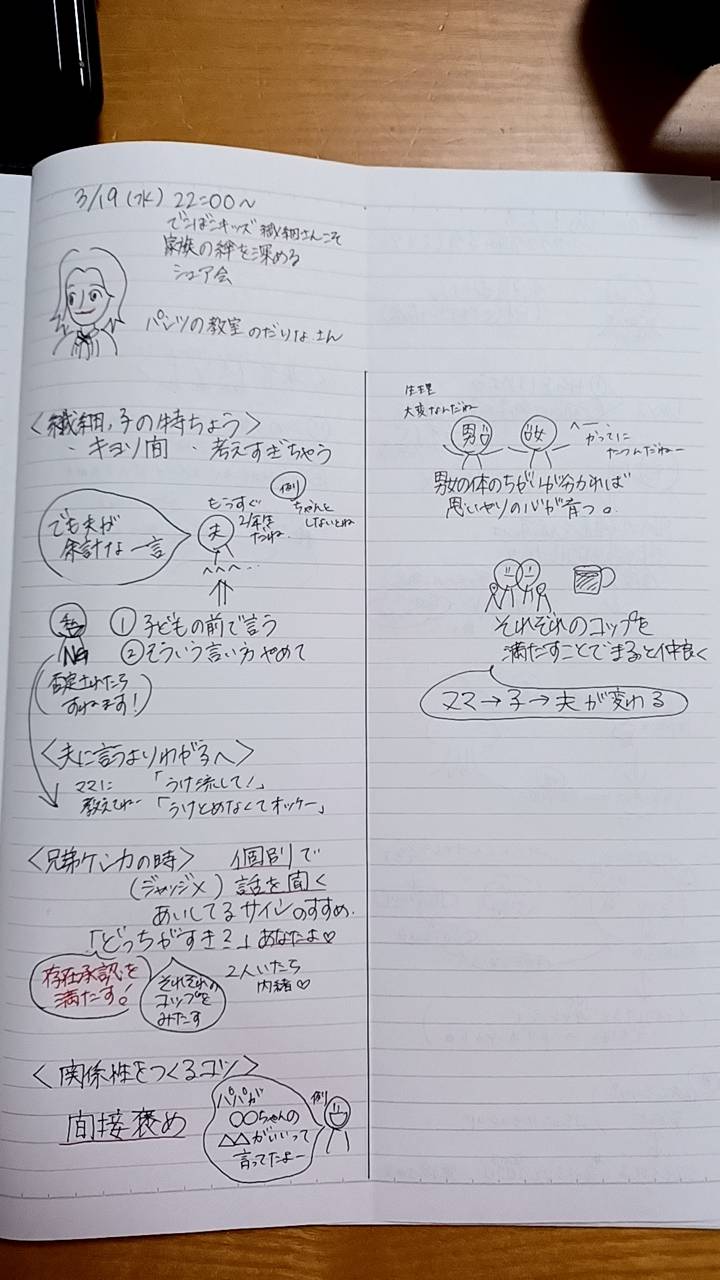 3/19(水) 22:00〜
でこぼこキッズ 繊細さんこそ
家族の絆を深める
シェア会
パンツの教室 のだりなさん
〈繊細、子の特ちょう〉
・キョリ間 ・考えすぎちゃう
でも夫が
余計な一言
夫
もうすぐ
2年生
だね
例
ちゃんと
しないとね
私
NG
① 子どもの前で言う
② そういう言い方やめて
(否定されたら
すねます!)
〈夫に言うよりわが子へ〉
ママに
教えてねー
「うけ流して!」
「うけとめなくてオッケー」
〈兄弟ケンカの時〉 個別で
(ジャッジ×) 話を聞く
あいしてるサインのすすめ.
「どっちがすき?」あなたよ♡
存在承認を
満たす!
それぞれの
コップを
みたす
2人いたら
内緒♡
〈関係性をつくるコツ〉
間接褒め
パパが
〇〇ちゃんの
△△がいいって
言ってたよー
例
生理
大変なんだね
男
女
へー
かってに
たつんだねー
男女の体のちがいが分かれば
思いやりの心が育つ。
それぞれのコップを
満たすことでまるっと仲良く
ママ→子→夫が変わる